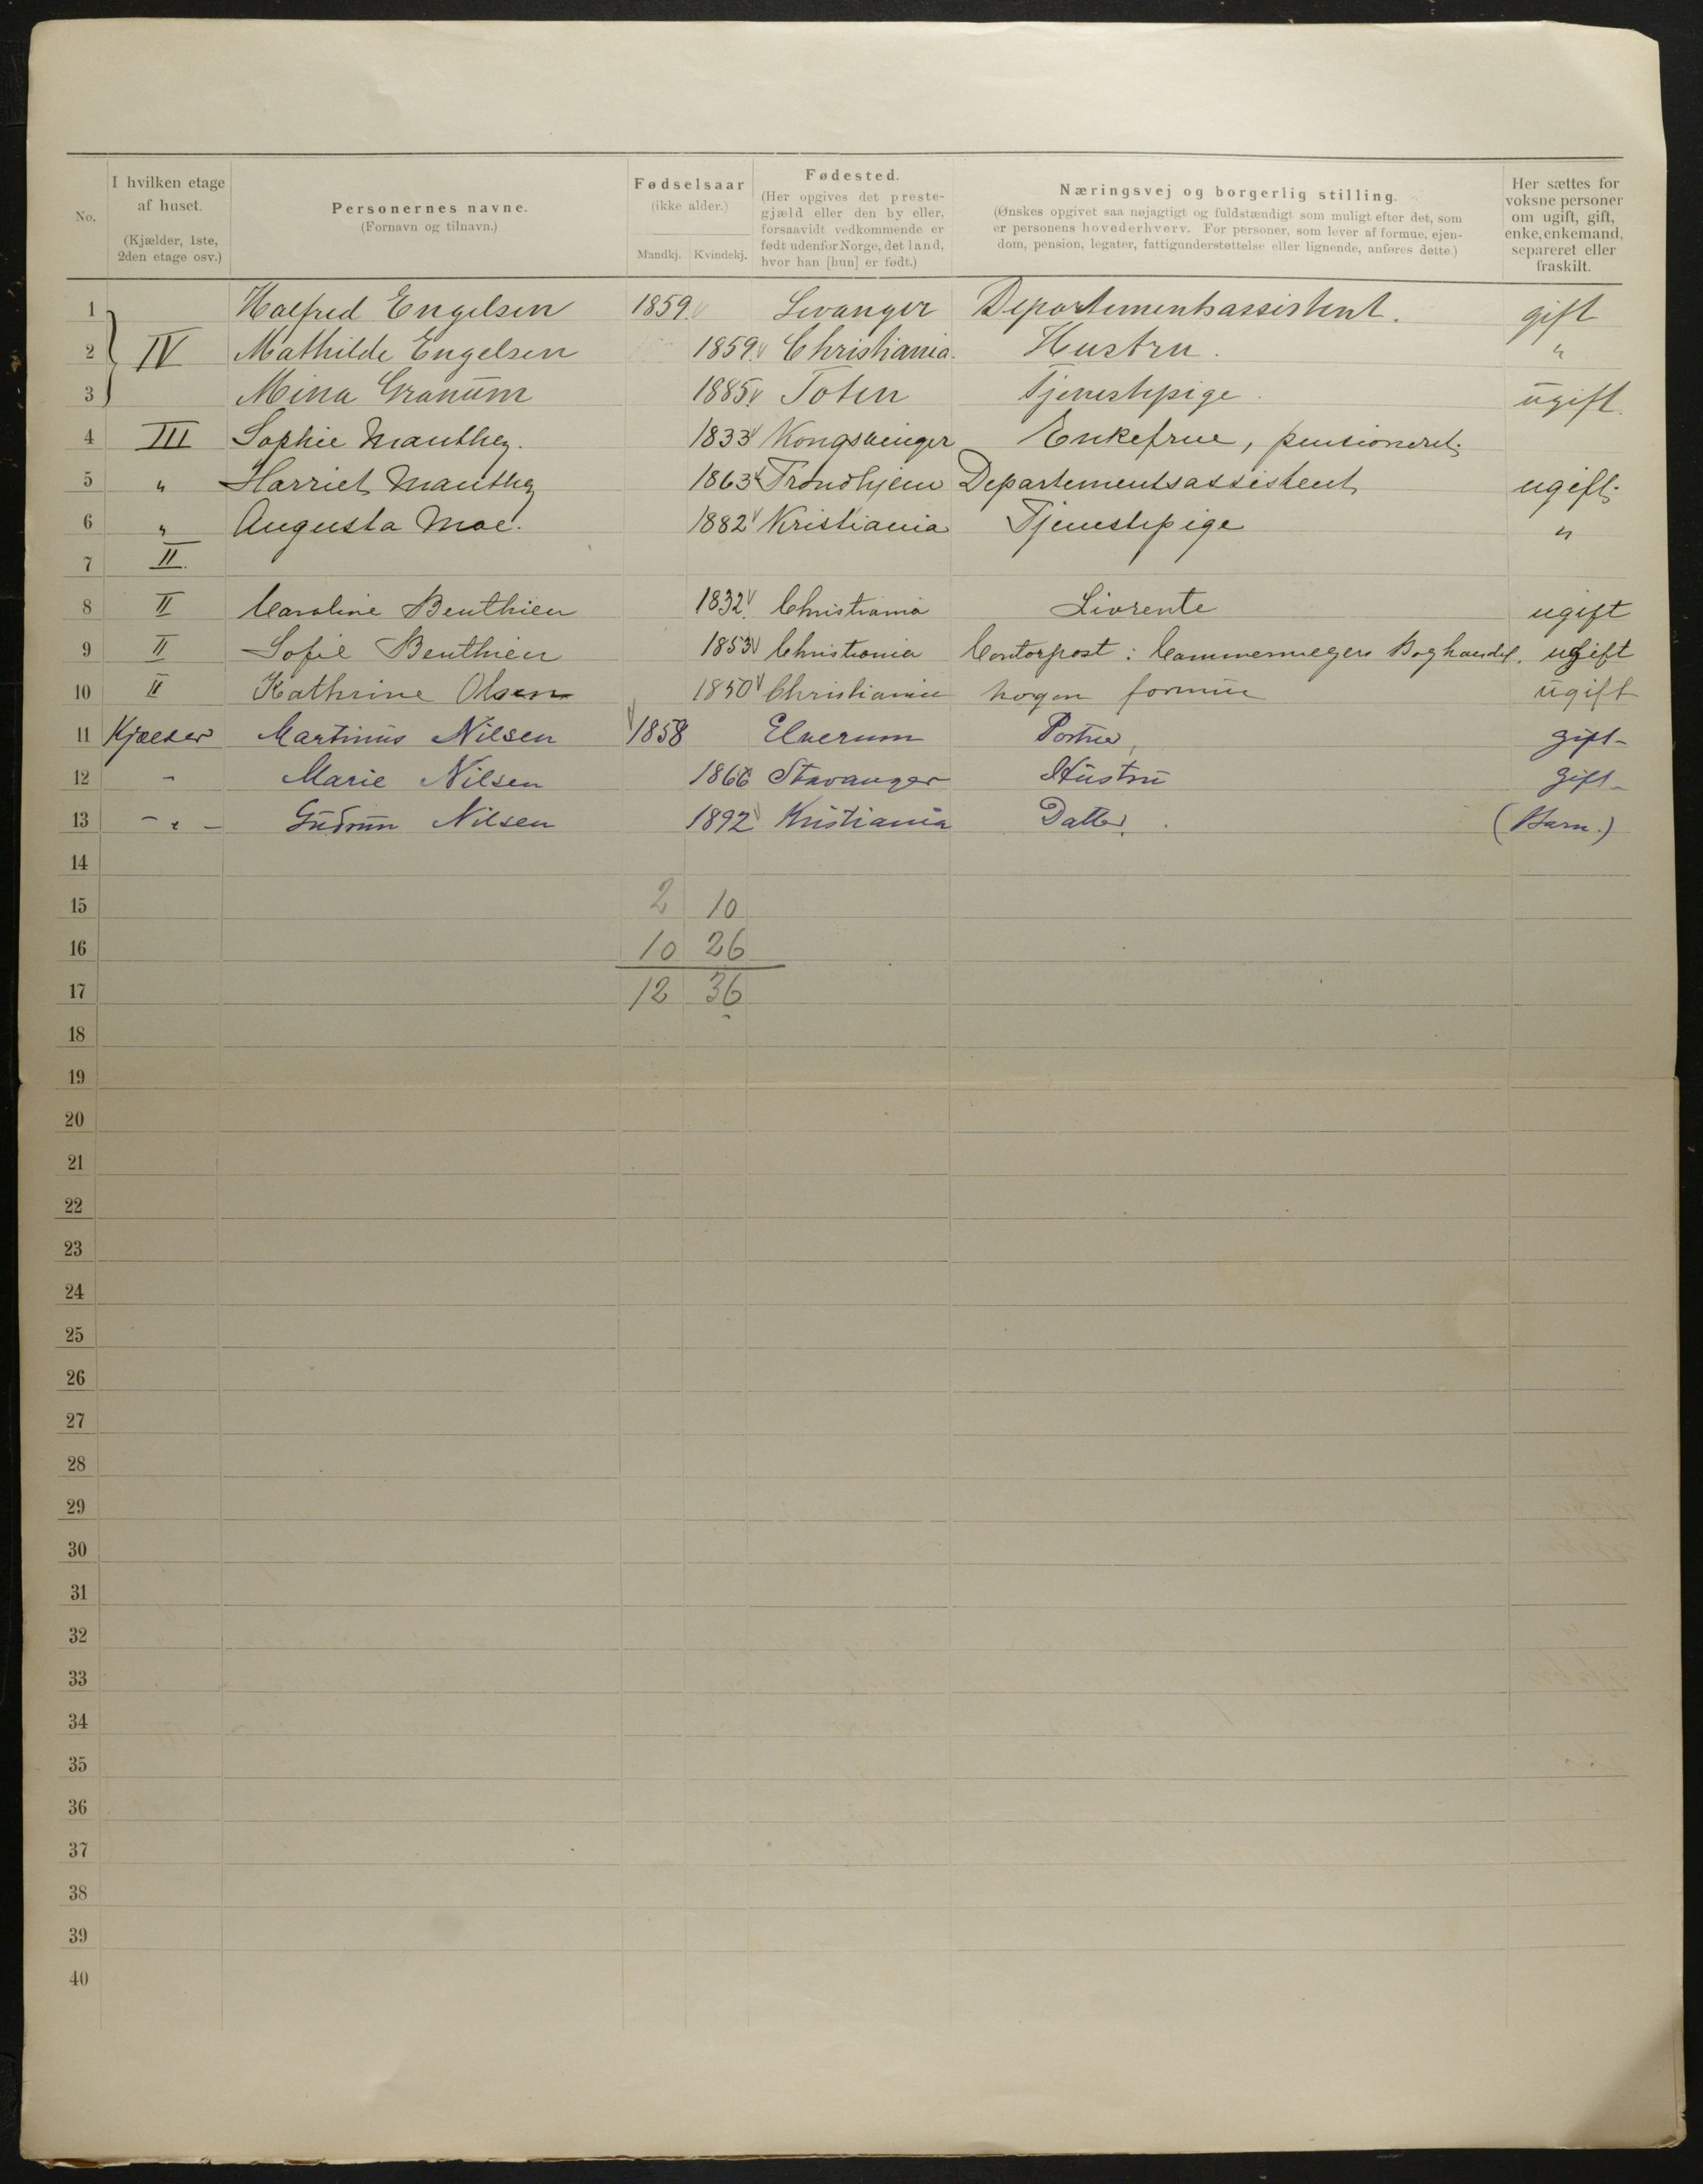 No.
I hvilken etage af huset. (Kjælder, 1ste, 2den etage osv.)
Personernes navne. (Fornavn og tilnavn.)
Fødselsaar (ikke alder.) Mandkj. Kvindekj.
Fødested. (Her opgives det prestegjæld eller den by eller, forsaavidt vedkommende er født udenfor Norge, det land, hvor han [hun] er født.)
Næringsvej og borgerlig stilling. (Ønskes opgivet saa nøjagtigt og fuldstændigt som muligt efter det, som er personens hovederhverv. For personer, som lever af formue, ejendom, pension, legater, fattigunderstøttelse eller lignende, anføres dette.)
Her sættes for voksne personer om ugift, gift, enke, enkemand, separeret eller fraskilt.
1 Halfred Engelsen 1859. Levanger Departementsassistent. gift
2 IV Mathilde Engelsen 1859. Christiania. Hustru. "
3 Mina Granum 1885. Toten Tjenestepige. ugift.
4 III Sophie Manthey. 1833 Kongsvinger Enkefrue, pensioneret.
5 " Harriet Manthey 1863 Trondhjem Departementsassistent ugift.
6 " Augusta Moe. 1882 Kristiania Tjenestepige "
7 II.
8 II Caroline Benthien 1832. Christiania Livrente ugift
9 II Sofie Benthien 1853 Christiania Contorpost: Cammermeyers Boghandel. ugift
10 II Kathrine Olsen 1850 Christiania formue ugift
11 Kjælder Martinus Nilsen 1858 Elverum Portner, gift-
12 - Marie Nilsen 1866 Stavanger Hustru gift-
13 - " - Gudrun Nilsen 1892 Kristiania Datter. (Barn.)
14
15 2 10
16 10 26
17 12 36
18
19
20
21
22
23
24
25
26
27
28
29
30
31
32
33
34
35
36
37
38
39
40